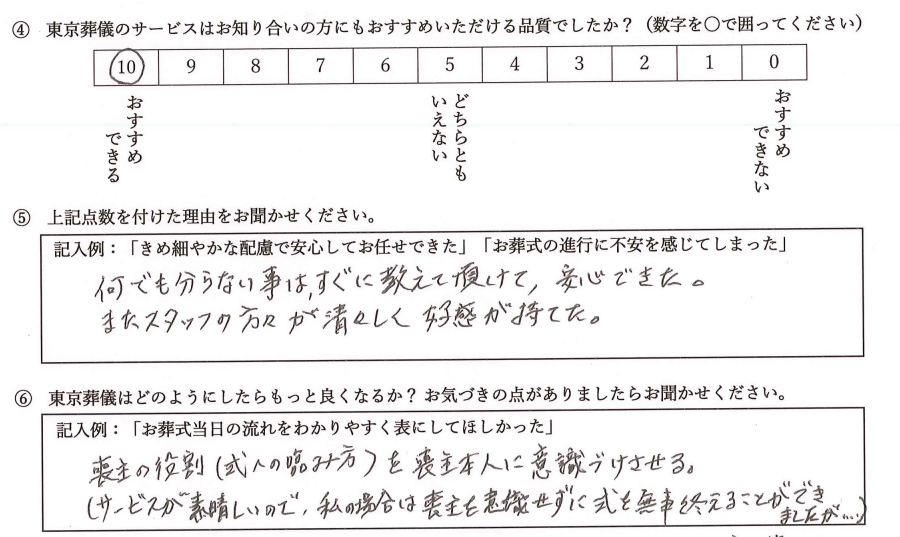 ④ 東京葬儀のサービスはお知り合いの方にもおすすめいただける品質でしたか？（数字を〇で囲ってください）
10 9 8 7 6 5 4 3 2 1 0
おすすめできる
どちらともいえない
おすすめできない
⑤ 上記点数を付けた理由をお聞かせください。
記入例：「きめ細やかな配慮で安心してお任せできた」「お葬式の進行に不安を感じてしまった」
何でも分らない事は、すぐに教えて頂けて、安心できた。
またスタッフの方々が清々しく好感が持てた。
⑥ 東京葬儀はどのようにしたらもっと良くなるか？ お気づきの点がありましたらお聞かせください。
記入例：「お葬式当日の流れをわかりやすく表にしてほしかった」
喪主の役割（式への臨み方）を喪主本人に意識づけさせる。
（サービスが素晴しいので、私の場合は喪主を意識せずに式を無事終えることができ
ましたが…）